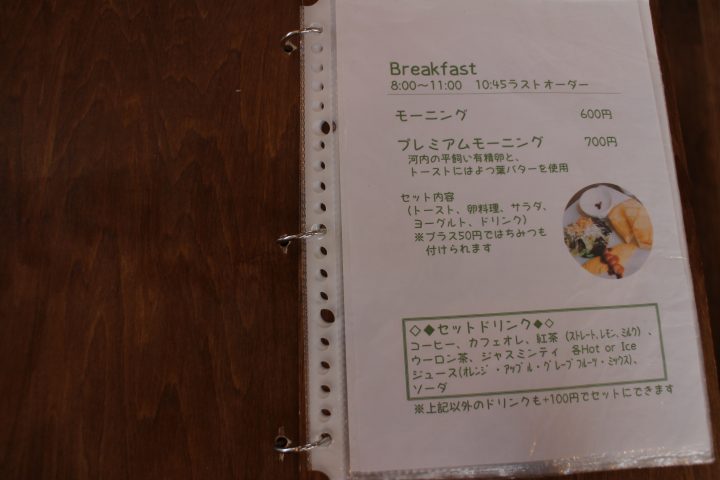 Breakfast
8:00～11:00　10:45ラストオーダー
モーニング　600円
プレミアムモーニング　700円
河内の平飼い有精卵と、
トーストにはよつ葉バターを使用
セット内容
（トースト、卵料理、サラダ、
ヨーグルト、ドリンク）
※プラス50円ではちみつも
付けられます
◇◆セットドリンク◆◇
コーヒー、カフェオレ、紅茶（ストレート、レモン、ミルク）、
ウーロン茶、ジャスミンティ　各Hot or Ice
ジュース(オレンジ・アップル・グレープフルーツ・ミックス)、
ソーダ
※上記以外のドリンクも+100円でセットにできます